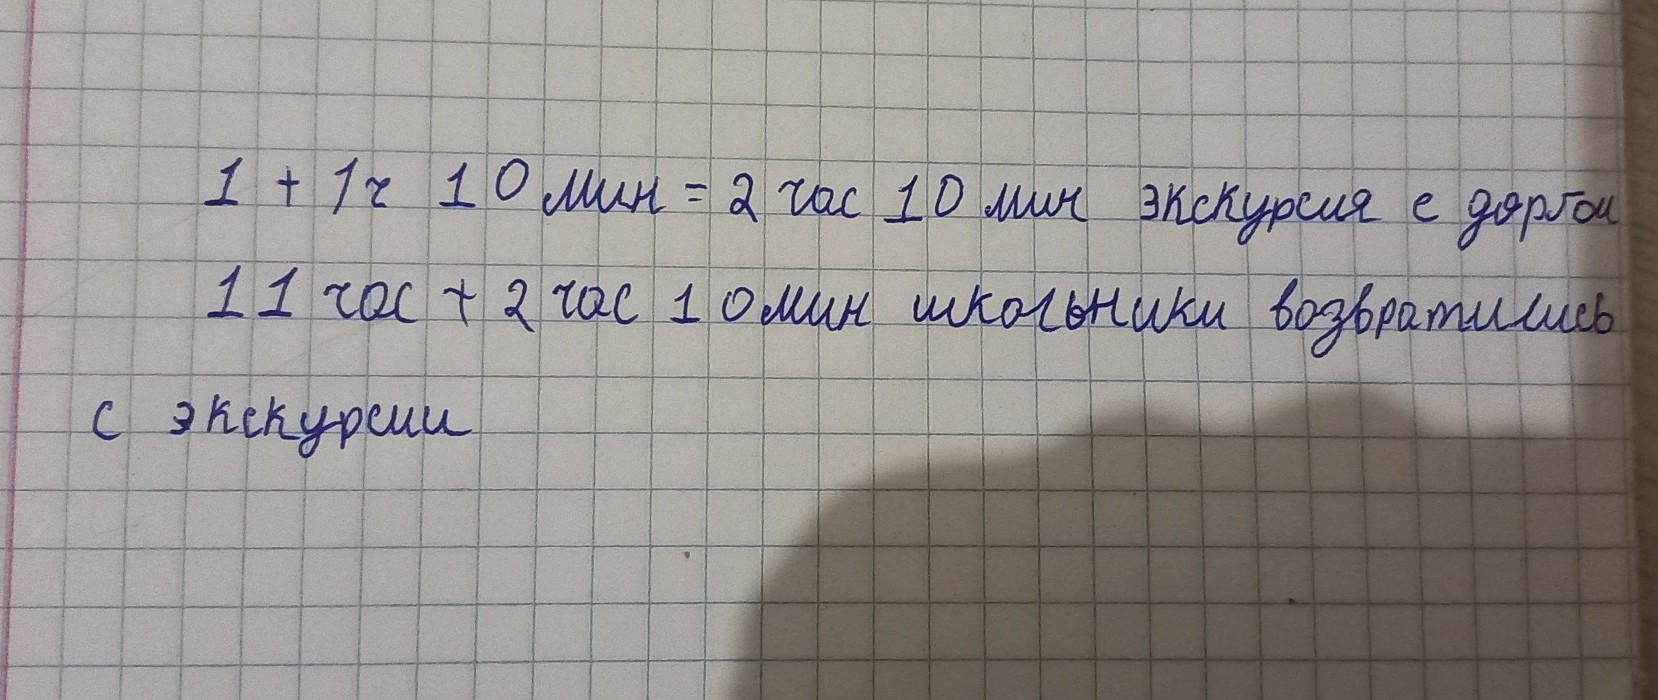 1 + 1ч 10 мин = 2 час 10 мин экскурсия с доргои
11 час + 2 час 10 мин школьники возвратились
с экскурсии